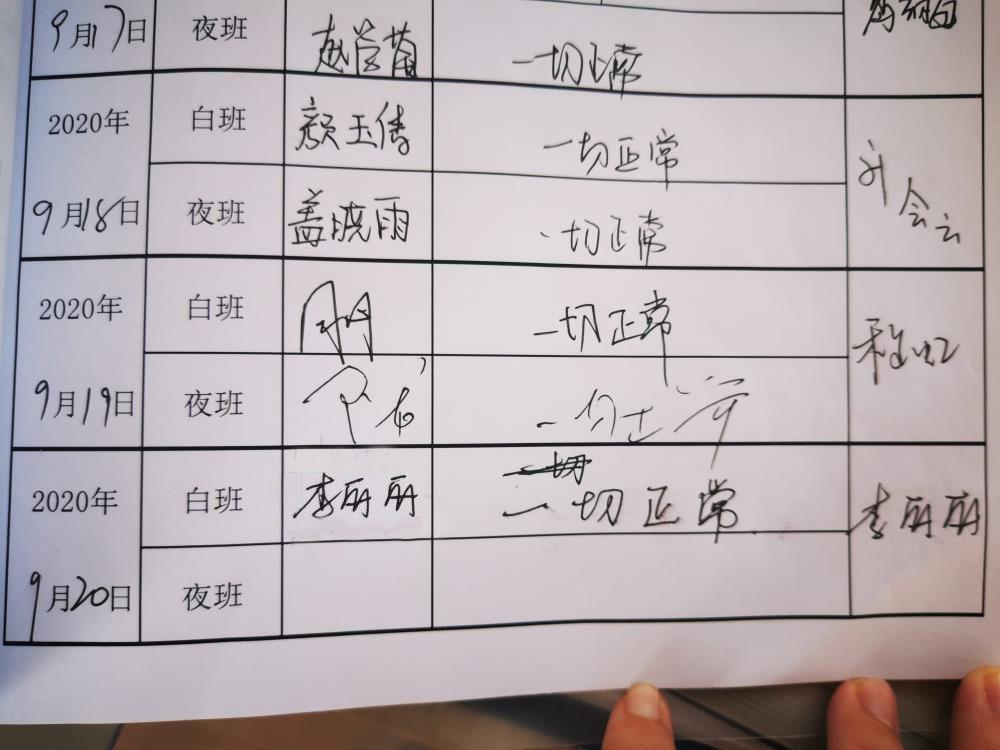 9月17日 夜班 赵学菊 一切正常
2020年 白班 颜玉倩 一切正常
9月18日 夜班 盖晓雨 一切正常
2020年 白班 一切正常
9月19日 夜班 一切正常
一切
2020年 白班 李丽丽 一切正常 李丽丽
9月20日 夜班